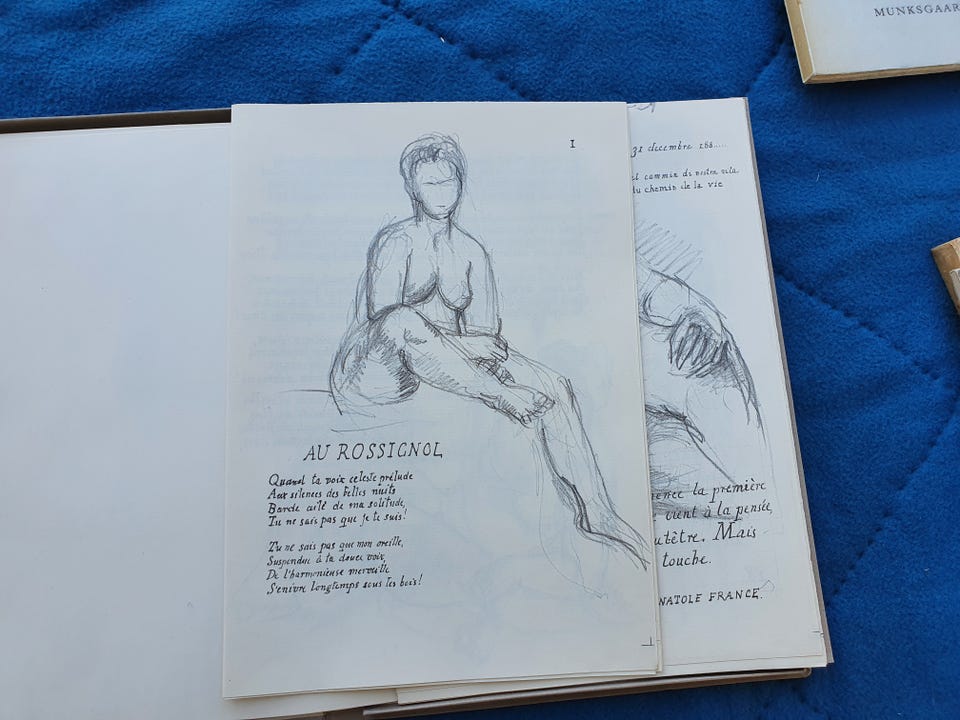 MUNKSGAAR
I
31 decembre 188.....
el cammin di nostra vita
du chemin de la vie
AU ROSSIGNOL
Quand ta voix celeste prélude
Aux silences des belles nuits
Barde ailé de ma solitude,
Tu ne sais pas que je te suis!
Tu ne sais pas que mon oreille,
Suspendue à ta douce voix,
De l'harmonieuse merveille
S'enivre longtemps sous les bois!
mence la première
vient à la pensée,
utêtre. Mais
touche.
NATOLE FRANCE.